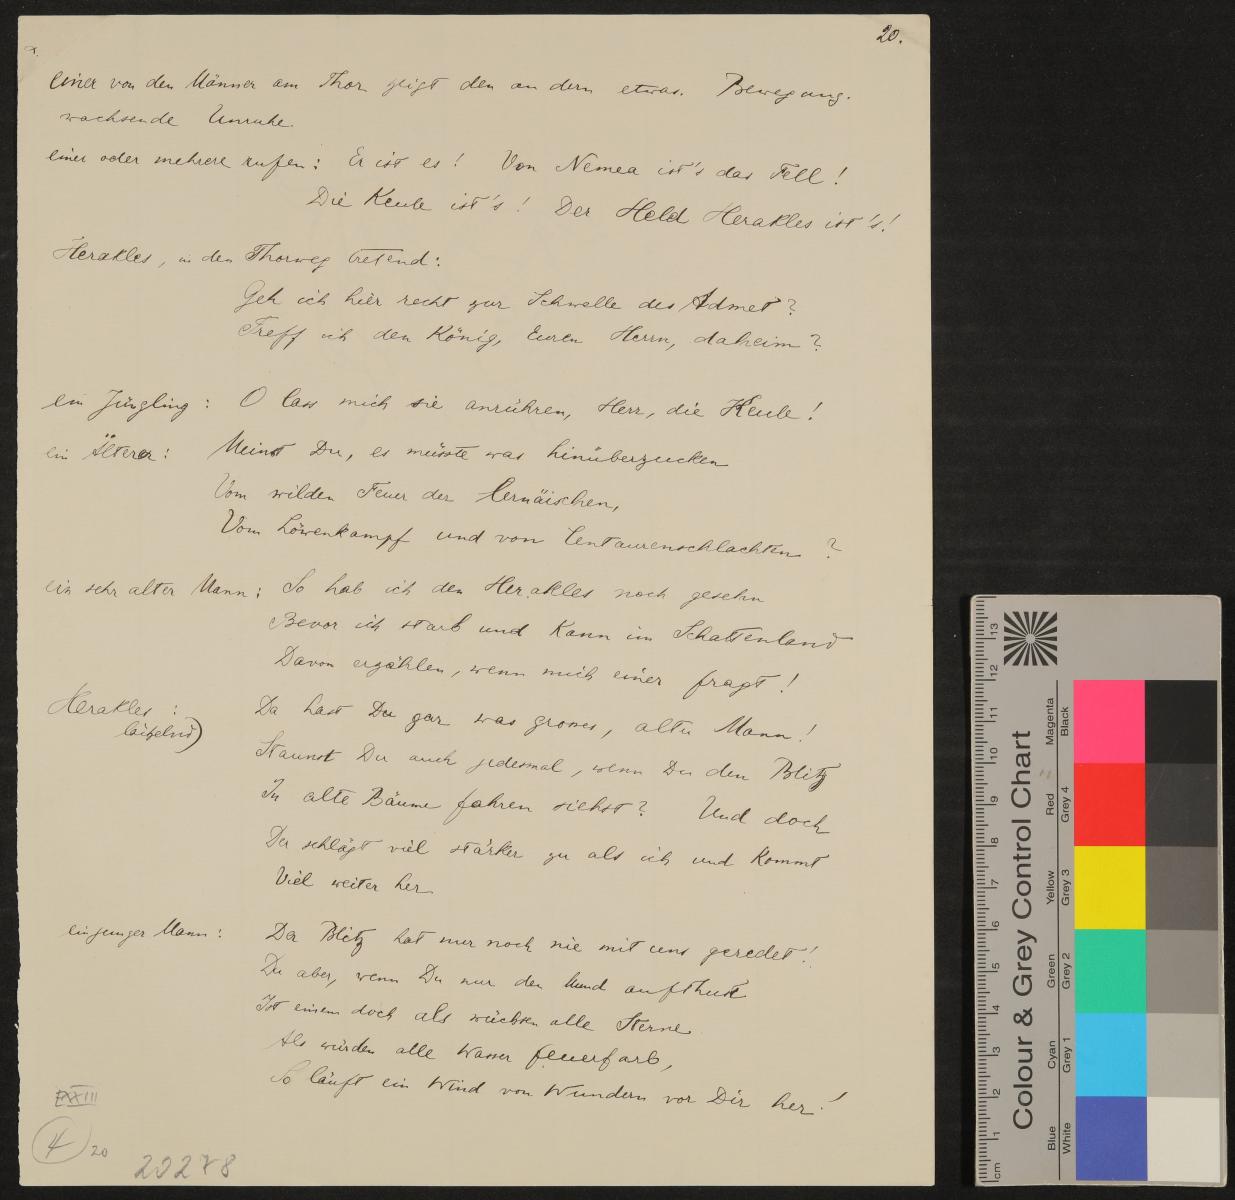 20.
x.
einer von den Männer am Thor zeigt den andern etwas. Bewegung.
wachsende Unruhe.
einer oder mehrere rufen: Er ist es! Von Nemea ist's das Fell!
Die Keule ist's! Der Held Herakles ist's!
Herakles, in den Thorweg tretend:
Geh ich hier recht zur Schwelle des Admet?
Treff ich den König, Euren Herrn, daheim?
ein Jüngling: O lass mich sie anrühren, Herr, die Keule!
ein Älterer: Meinst Du, es müsste was hinüberzucken
Vom wilden Feuer der lernäischen,
Vom Löwenkampf und von Centaurenschlachten?
ein sehr alter Mann: So hab ich den Herakles noch gesehn
Bevor ich starb und kann im Schattenland
Davon erzählen, wenn mich einer fragt!
Herakles: Da hast Du gar was grosses, alter Mann!
lächelnd)
Staunst Du auch jedesmal, wenn Du den Blitz
In alte Bäume fahren siehst? Und doch
Der schlägt viel stärker zu als ich und kommt
Viel weiter her
ein junger Mann: Der Blitz hat nur noch nie mit uns geredet!
Du aber, wenn Du nur den Mund aufthust
Ist einem doch als wüchsen alle Sterne
Als würden alle Wasser feuerfarb,
So läuft ein Wind von Wundern vor Dir her!
XXIII
4 20
20278
Colour & Grey Control Chart
Blue Cyan Green Yellow Red Magenta
White Grey 1 Grey 2 Grey 3 Grey 4 Black
cm 1 2 3 4 5 6 7 8 9 10 11 12 13